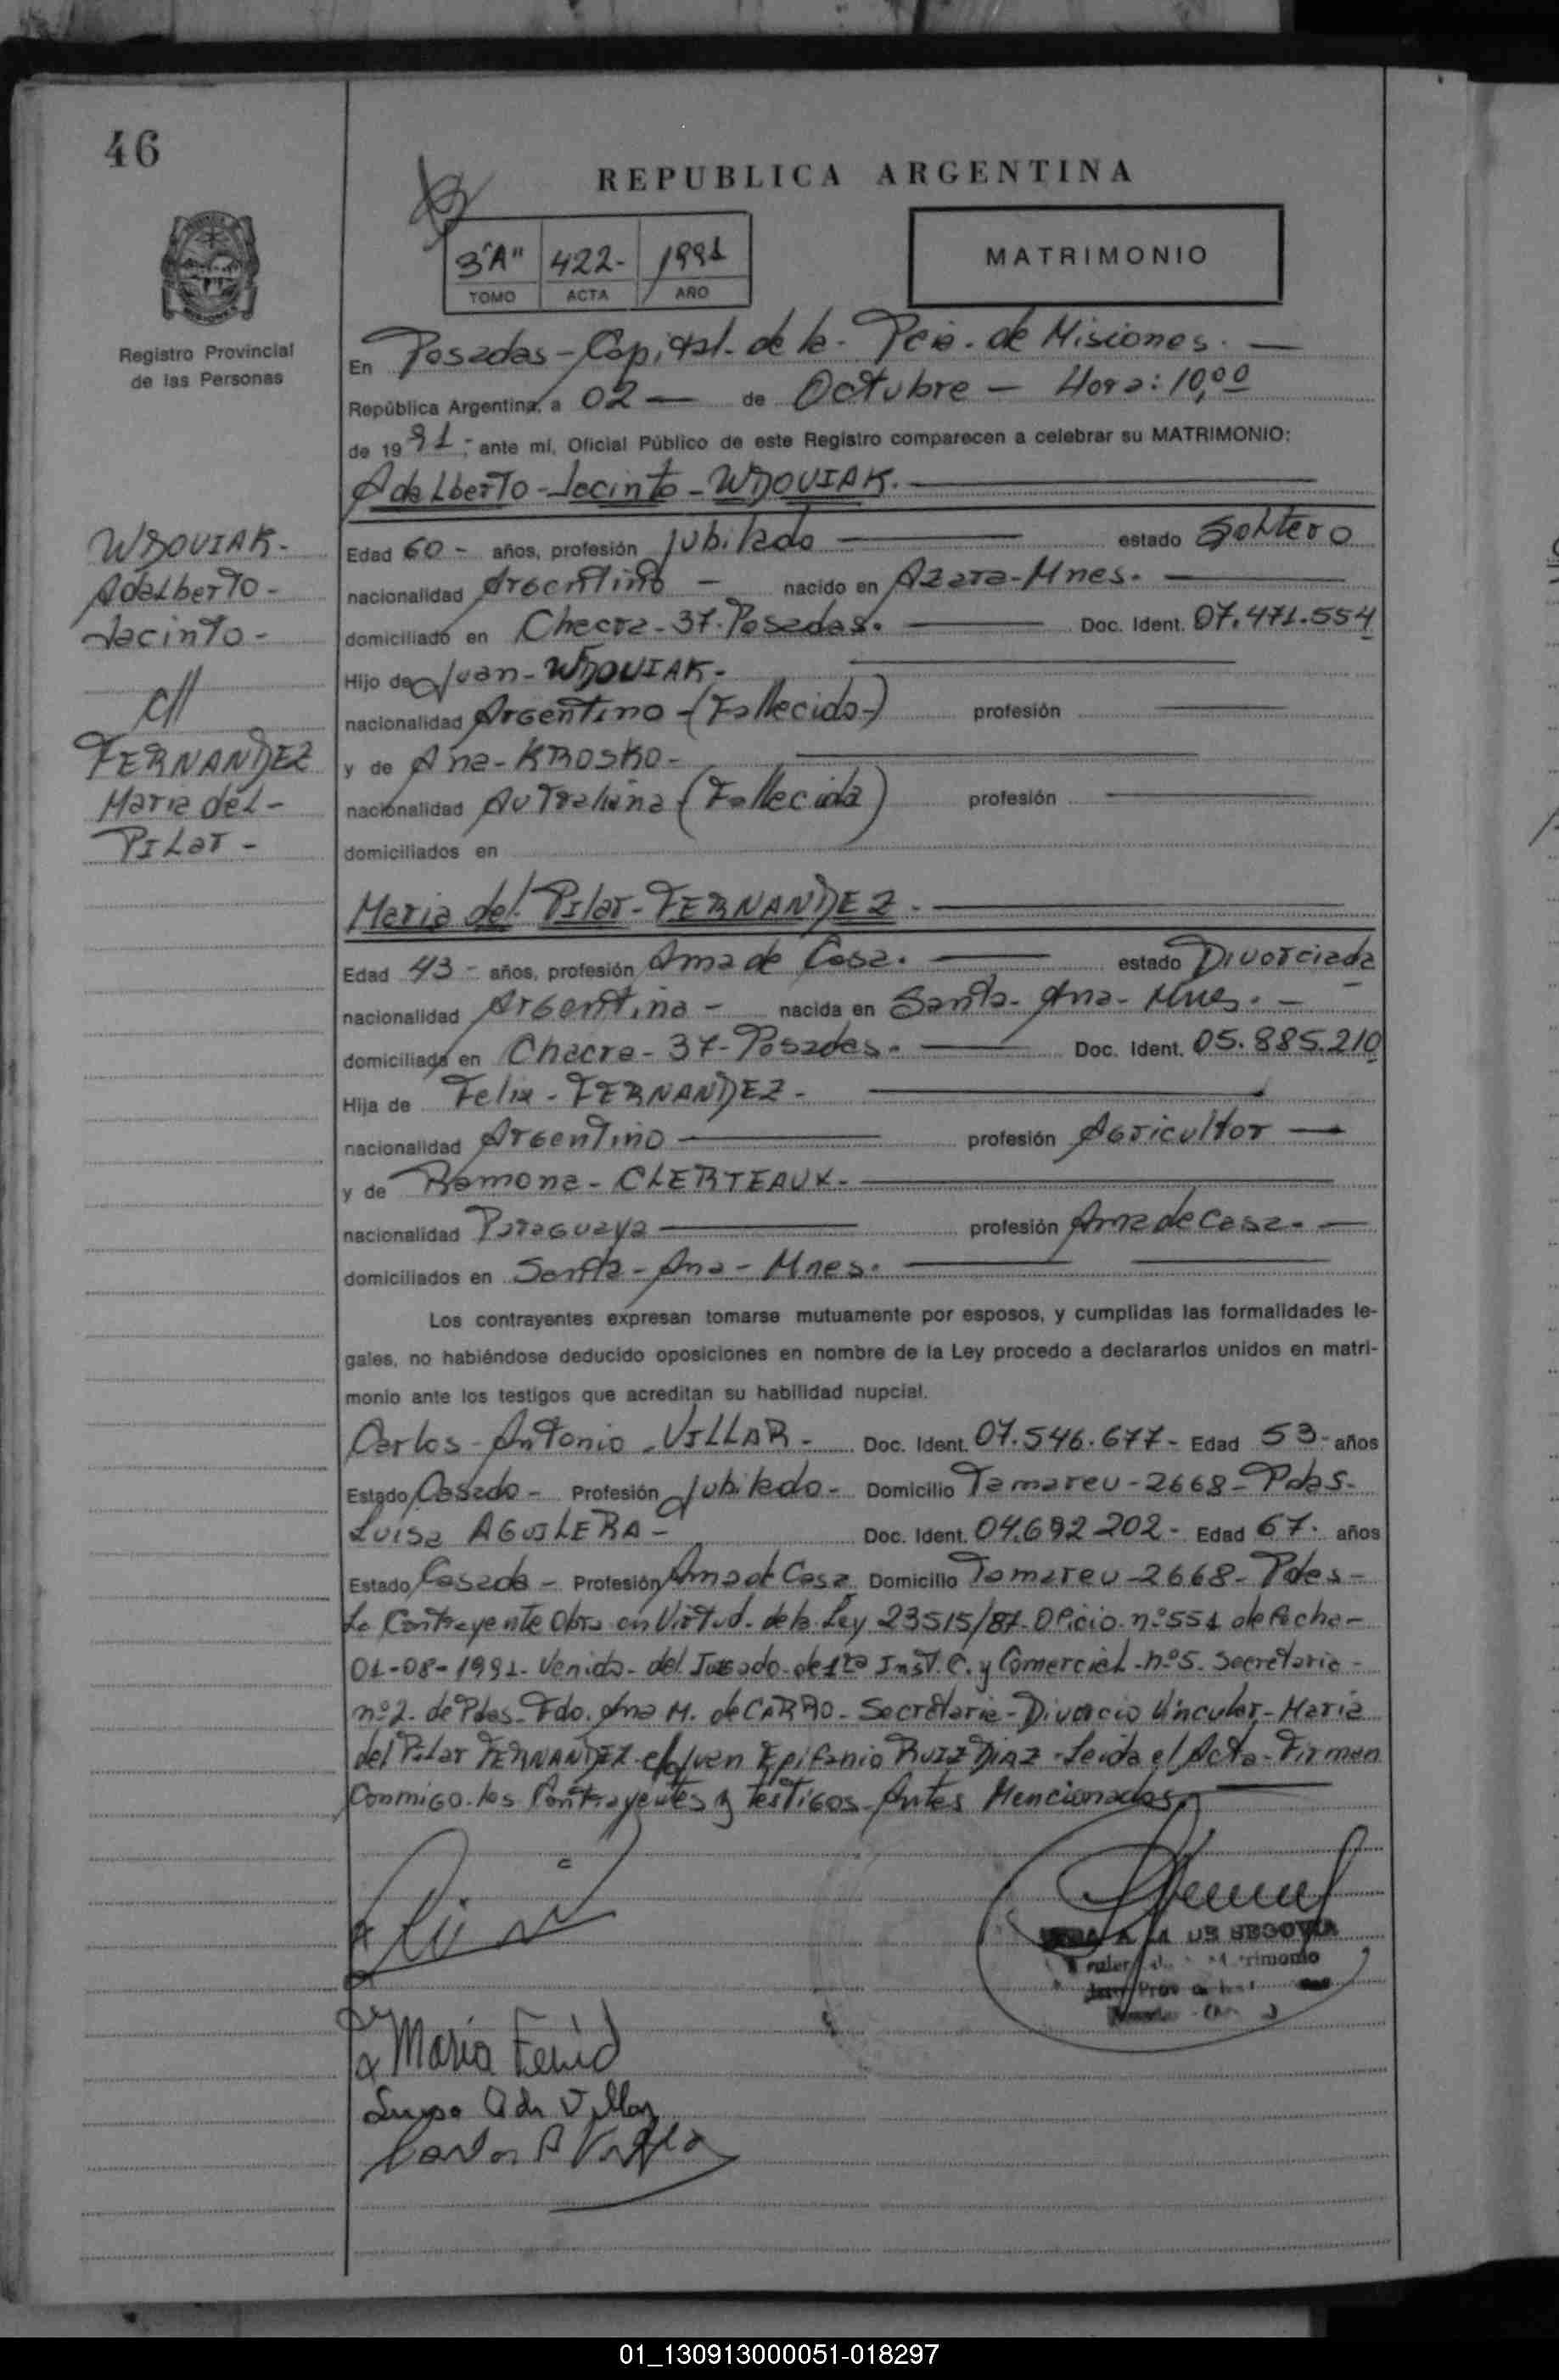 46
REPUBLICA ARGENTINA
3"A" 422- 1991
TOMO ACTA AÑO
MATRIMONIO
Registro Provincial
de las Personas
En Posadas-Capital-de la-Pcia-de Misiones.-
República Argentina, a 02- de Octubre- Hora: 10,00
de 1991; ante mi, Oficial Público de este Registro comparecen a celebrar su MATRIMONIO:
Adalberto-Jacinto-WDOVIAK.-
WDOVIAK-
Adalberto-
Jacinto-
c//
FERNANDEZ
Maria del-
Pilar-
Edad 60- años, profesión jubilado estado Soltero
nacionalidad Argentino- nacido en Azara-Mnes.
domiciliado en Chacra-37-Posadas. Doc. Ident. 07.471.554
Hijo de Juan-WDOVIAK-
nacionalidad Argentino-(Fallecido-) profesión
y de Ana-KROSKO-
nacionalidad Autraliana (Fallecida) profesión
domiciliados en
Maria del Pilar-FERNANDEZ.-
Edad 43- años, profesión Ama de Casa. estado Divorciada
nacionalidad Argentina- nacida en Santa-Ana-Mnes.-
domiciliada en Chacra-37-Posadas.- Doc. Ident. 05.885.210
Hija de Felix-FERNANDEZ-
nacionalidad Argentino profesión Agricultor
y de Ramona-CLERTEAUX-
nacionalidad Paraguaya profesión Ama de casa.-
domiciliados en Santa-Ana-Mnes.
Los contrayentes expresan tomarse mutuamente por esposos, y cumplidas las formalidades le-
gales, no habiéndose deducido oposiciones en nombre de la Ley procedo a declararlos unidos en matri-
monio ante los testigos que acreditan su habilidad nupcial.
Carlos-Antonio-VILLAR- Doc. Ident. 07.546.677- Edad 53- años
Estado Casado- Profesión Jubilado- Domicilio Tamareu-2668-Pdas-
Luisa AGUILERA- Doc. Ident. 04.692.202- Edad 67. años
Estado Casada- Profesión Ama de Casa Domicilio Tamareu-2668-Pdas-
La Contrayente Obra en Virtud-de la Ley 23515/87-Oficio-nº551 de fecha-
01-08-1991-Venido-del Juzgado-de 1ra Inst. C. y Comercial-nº5-Secretaria-
nº2-de Pdas-Fdo. Ana M. de CARRO-Secretaria-Divorcio Vincular-Maria
del Pilar FERNANDEZ c/Juan Epifanio RUIZ DIAZ-Leida el Acta-Firman
Conmigo-los Contrayentes y testigos-Antes Mencionados.
DE SEGOVIA
Maria
01_130913000051-018297